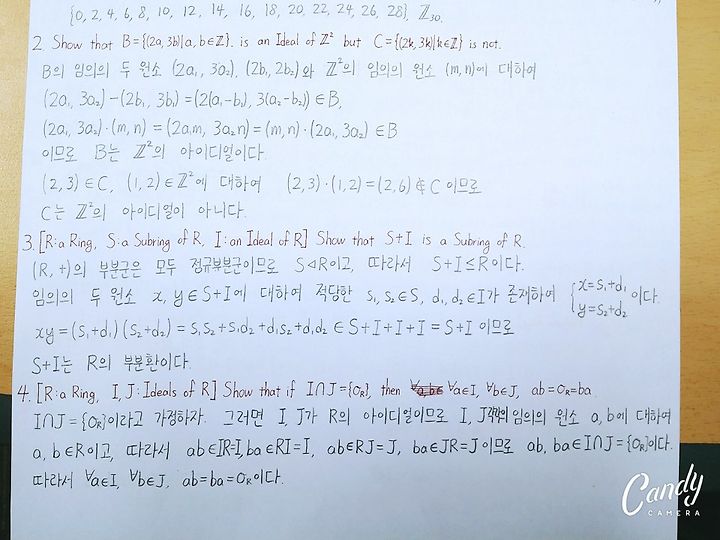 {0, 2, 4, 6, 8, 10, 12, 14, 16, 18, 20, 22, 24, 26, 28} ℤ₃₀.
2. Show that B={(2a, 3b)|a, b∈ℤ}. is an Ideal of ℤ² but C={(2k, 3k)|k∈ℤ} is not.
B의 임의의 두 원소 (2a₁, 3a₂), (2b₁, 2b₂)와 ℤ²의 임의의 원소 (m, n)에 대하여
(2a₁, 3a₂)-(2b₁, 3b₂)=(2(a₁-b₁), 3(a₂-b₂))∈B,
(2a₁, 3a₂)·(m, n)=(2a₁m, 3a₂n)=(m, n)·(2a₁, 3a₂)∈B
이므로 B는 ℤ²의 아이디얼이다.
(2, 3)∈C, (1, 2)∈ℤ²에 대하여 (2, 3)·(1, 2)=(2, 6)∉C 이므로
C는 ℤ²의 아이디얼이 아니다.
3. [R: a Ring, S: a Subring of R, I: an Ideal of R] Show that S+I is a Subring of R.
(R, +)의 부분군은 모두 정규부분군이므로 S◁R이고, 따라서 S+I≤R이다.
임의의 두 원소 x, y∈S+I에 대하여 적당한 s₁, s₂∈S, d₁, d₂∈I가 존재하여 {x=s₁+d₁ y=s₂+d₂ 이다.
xy=(s₁+d₁)(s₂+d₂)=s₁s₂+s₁d₂+d₁s₂+d₁d₂∈S+I+I+I=S+I 이므로
S+I는 R의 부분환이다.
4. [R: a Ring, I, J: Ideals of R] Show that if I∩J={0_R}, then ∀a∈I, ∀b∈J, ab=0_R=ba.
I∩J={0_R}이라고 가정하자. 그러면 I, J가 R의 아이디얼이므로 I, J 각각의 임의의 원소 a, b에 대하여
a, b∈R이고, 따라서 ab∈IR=I, ba∈RI=I, ab∈RJ=J, ba∈JR=J이므로 ab, ba∈I∩J={0_R}이다.
따라서 ∀a∈I, ∀b∈J, ab=ba=0_R이다.
Candy
CAMERA